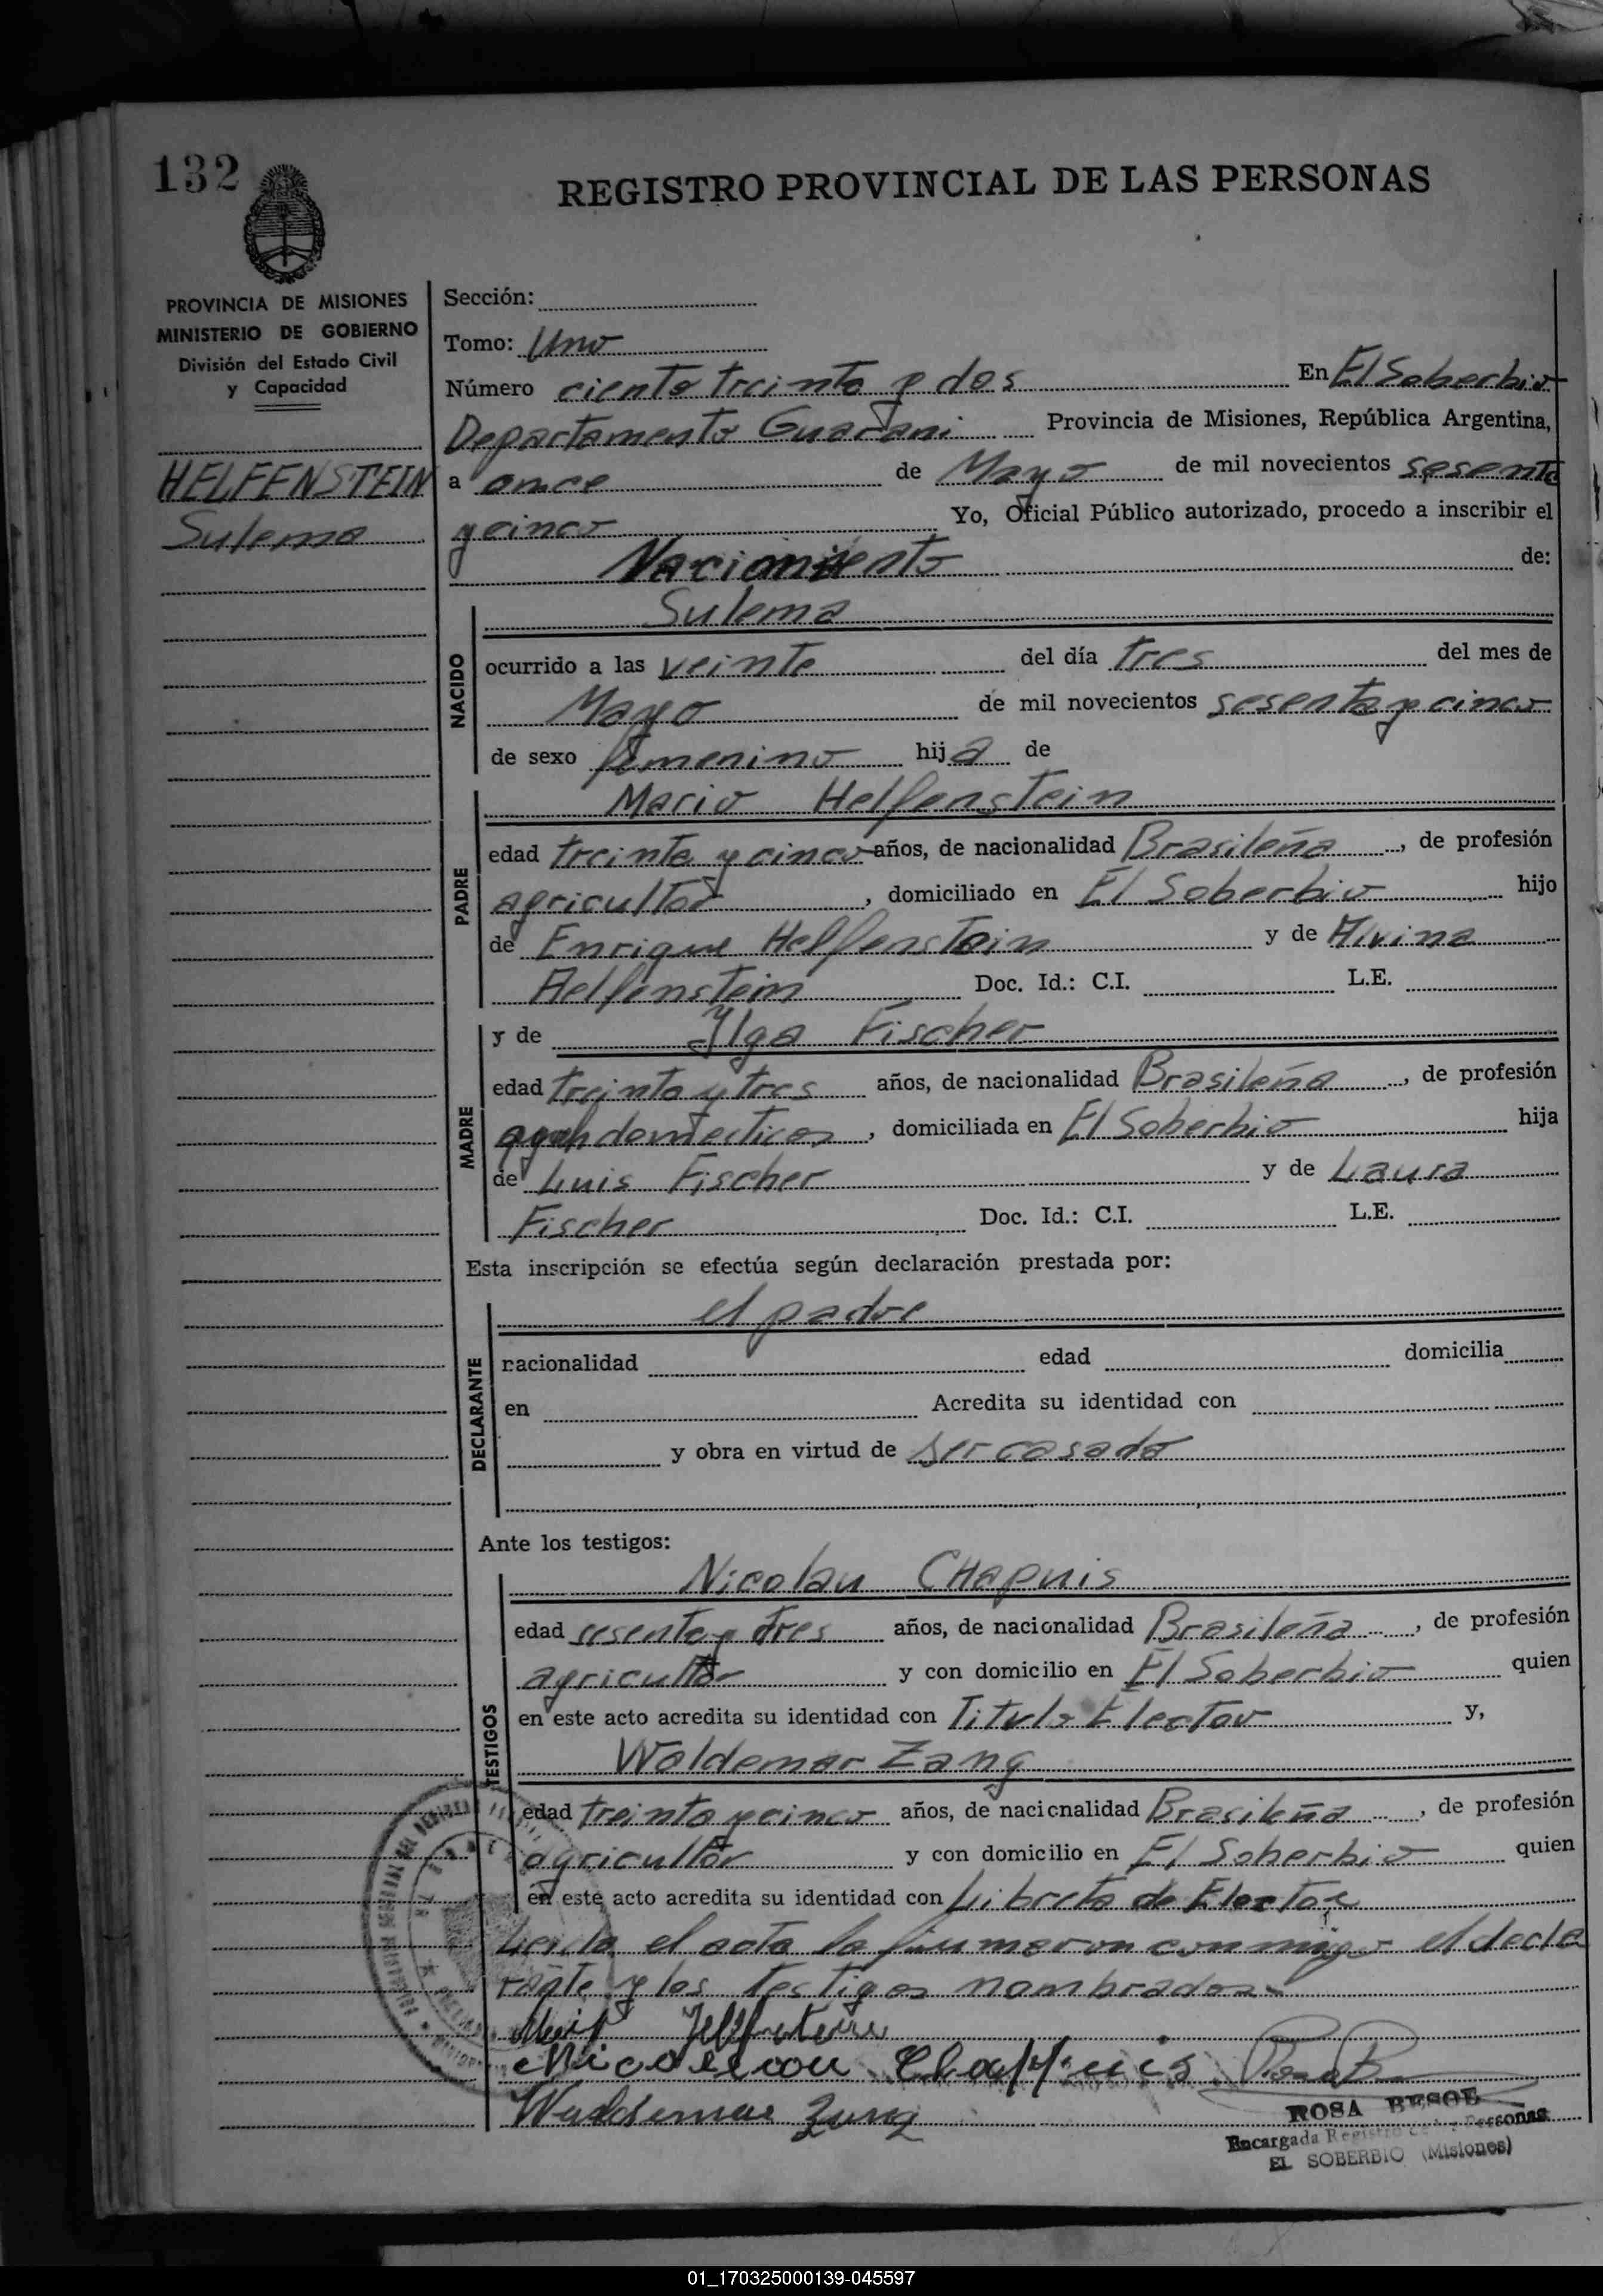 132
REGISTRO PROVINCIAL DE LAS PERSONAS
PROVINCIA DE MISIONES
MINISTERIO DE GOBIERNO
División del Estado Civil
y Capacidad
HELFFENSTEIN
Sulema
Sección:
Tomo: Uno
Número ciento treinta y dos En El Soberbio
Departamento Guarani Provincia de Misiones, República Argentina,
a once de Mayo de mil novecientos sesenta
y cinco Yo, Oficial Público autorizado, procedo a inscribir el
Nacimiento de:
NACIDO
Sulema
ocurrido a las veinte del día tres del mes de
Mayo de mil novecientos sesenta y cinco
de sexo femenino hija de
PADRE
Mario Helfenstein
edad treinta y cinco años, de nacionalidad Brasileña, de profesión
agricultor, domiciliado en El Soberbio hijo
de Enrique Helfenstein y de Alvina
Helfenstein Doc. Id.: C.I. L.E.
MADRE
y de Ilga Fischer
edad treinta y tres años, de nacionalidad Brasileña, de profesión
domesticos, domiciliada en El Soberbio hija
de Luis Fischer y de Laura
Fischer Doc. Id.: C.I. L.E.
Esta inscripción se efectúa según declaración prestada por:
DECLARANTE
el padre
nacionalidad edad domicilia
en Acredita su identidad con
y obra en virtud de ser casado
Ante los testigos:
TESTIGOS
Nicolau CHapuis
edad sesenta y tres años, de nacionalidad Brasileña, de profesión
agricultor y con domicilio en El Soberbio quien
en este acto acredita su identidad con Titulo Elector y,
Waldemar Zang
edad treinta y cinco años, de nacionalidad Brasileña, de profesión
agricultor y con domicilio en El Soberbio quien
en este acto acredita su identidad con Libreta de Elector
Leida el acta la firmaron conmigo el decla
rante y los testigos nombrados.-
Nicolau Chappuis
Waldemar Zang
ROSA BESOE
Encargada Registro de las Personas
EL SOBERBIO (Misiones)
01_170325000139-045597